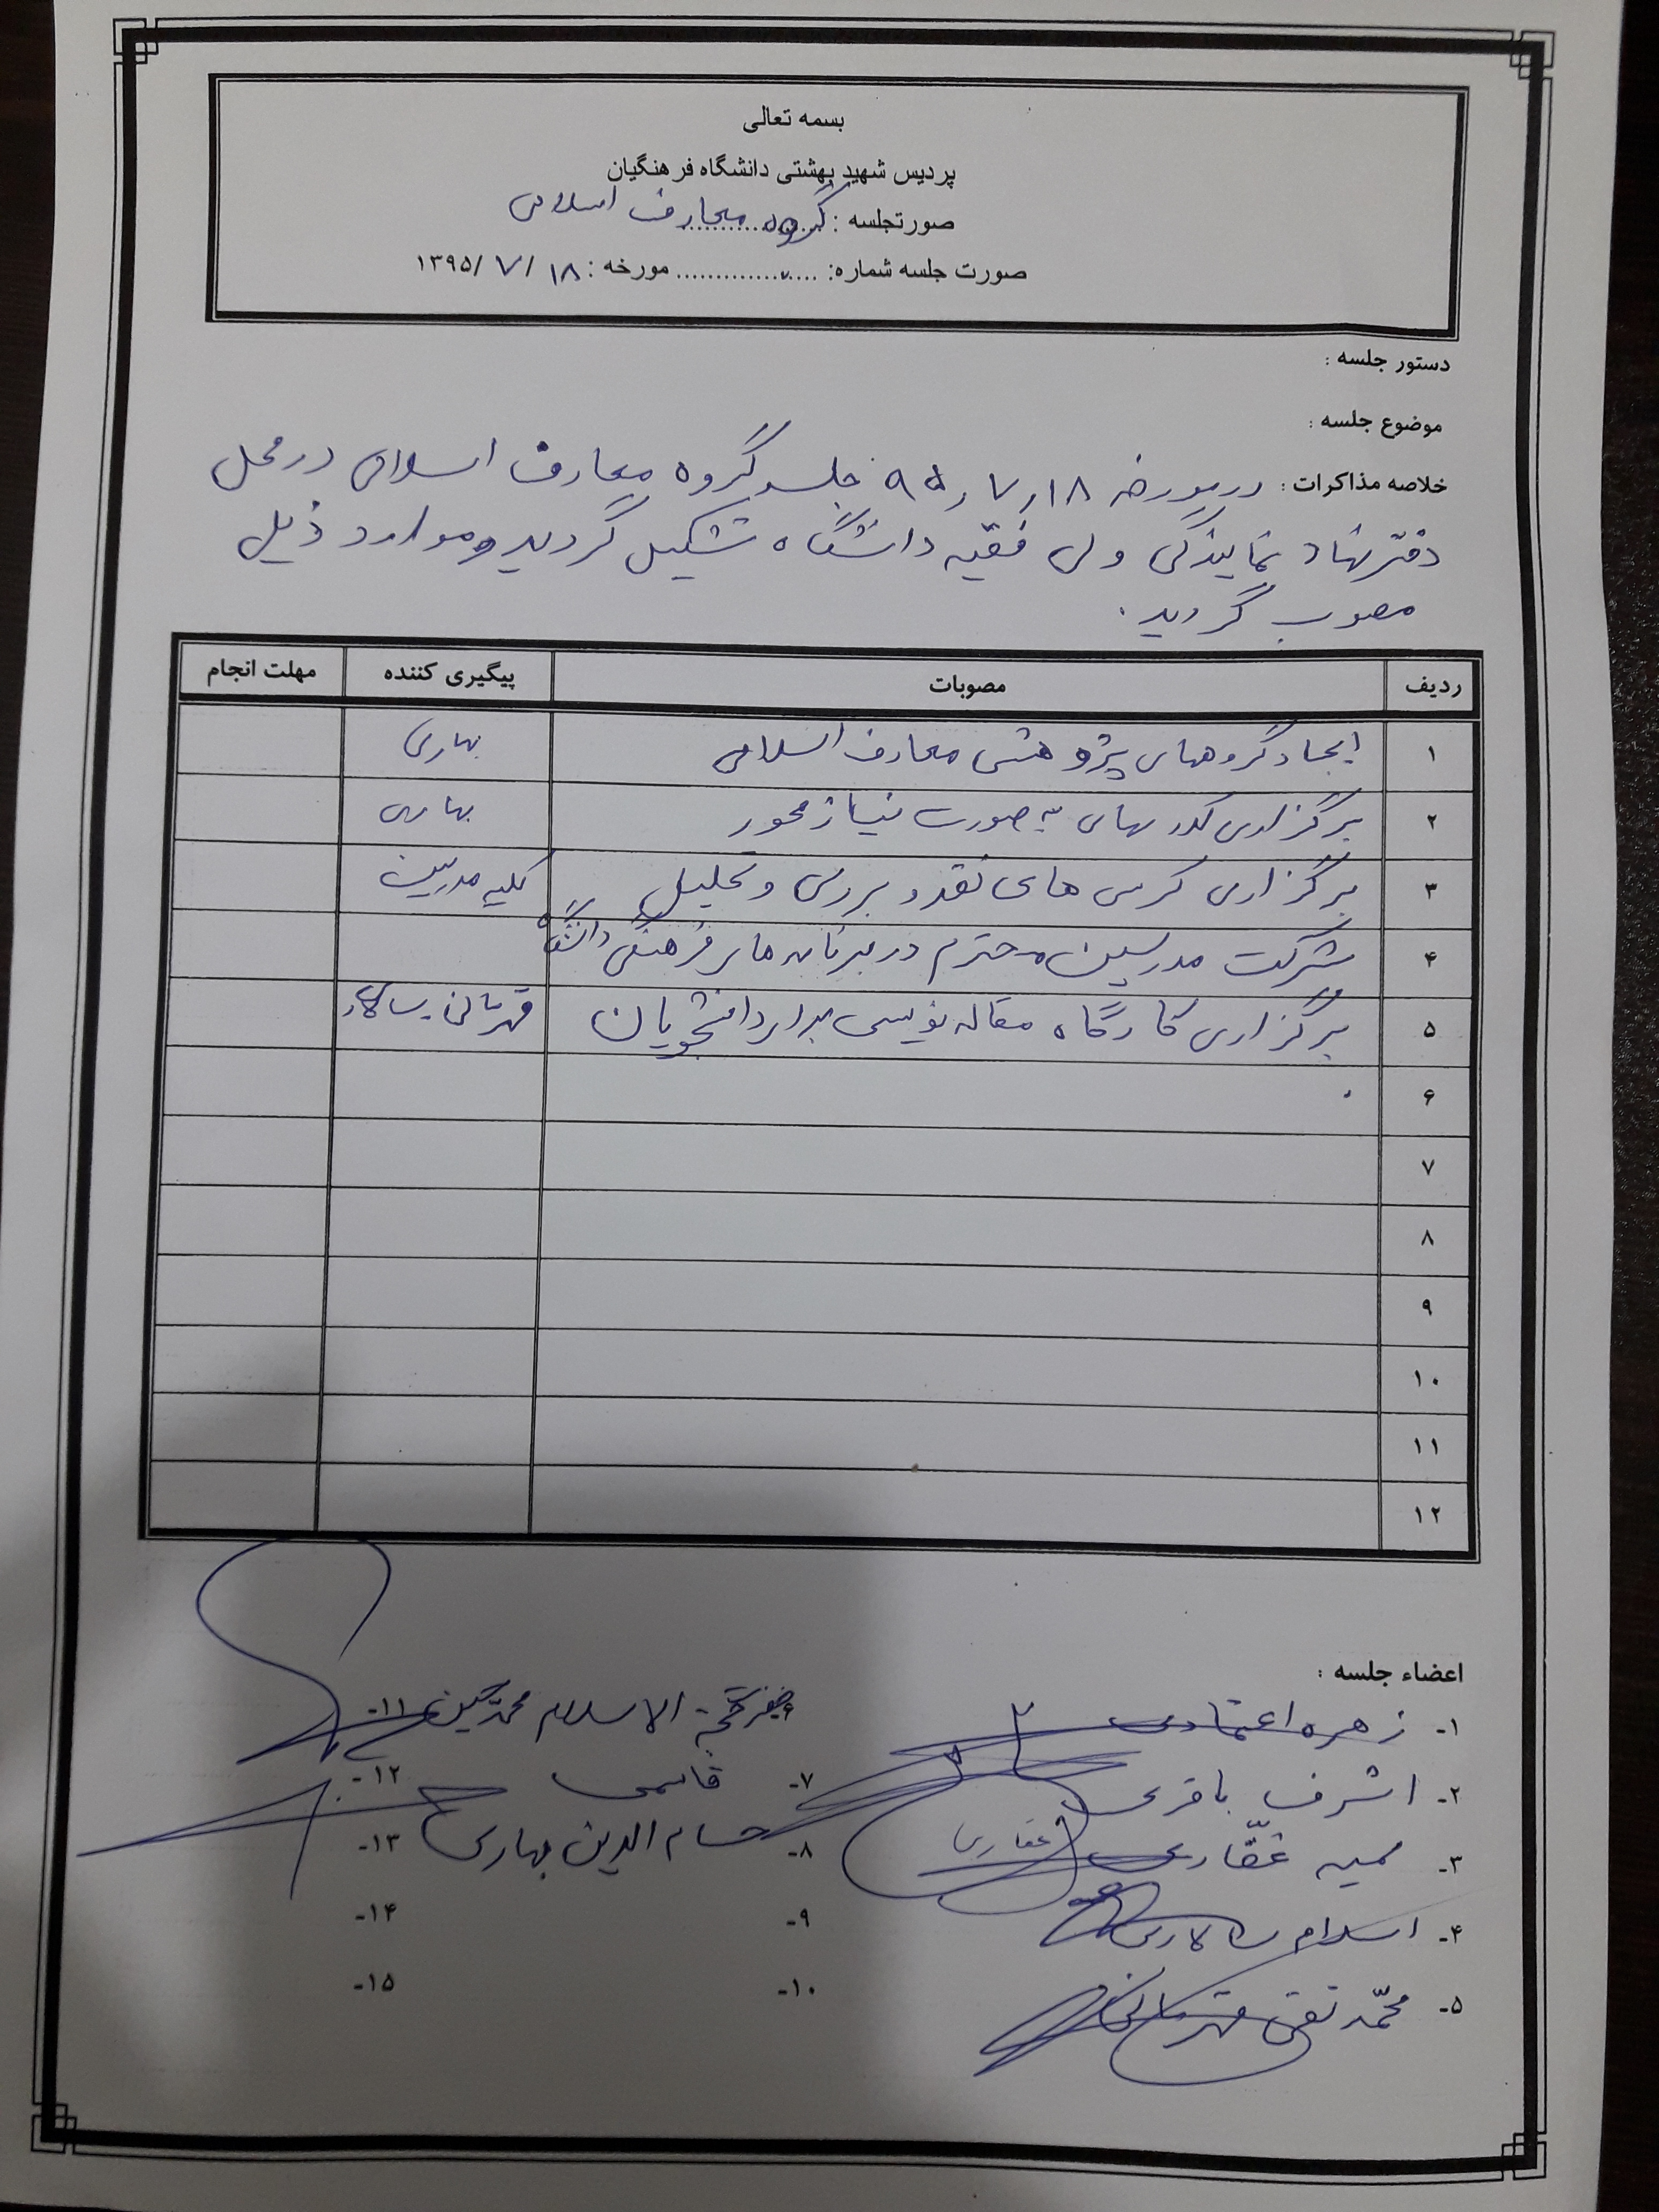 بسمه تعالی
پردیس شهید بهشتی دانشگاه فرهنگیان
صورتجلسه : گروه معارف اسلامی
صورت جلسه شماره: .................. مورخه : ۱۸ / ۷ /۱۳۹۵
دستور جلسه :
موضوع جلسه :
خلاصه مذاکرات : در مورخه ۱۸ / ۷ / ۹۵ جلسه گروه معارف اسلامی در محل
دفتر نهاد نمایندگی ولی فقیه دانشگاه تشکیل گردید و موارد ذیل
مصوب گردید .
ردیف مصوبات پیگیری کننده مهلت انجام
۱ ایجاد گروههای پژوهشی معارف اسلامی بهاری
۲ برگزاری کلاسهای به صورت نیاز محور بهاری
۳ برگزاری کرسی های نقد و بررسی و تحلیل کلیه مدرسین
۴ شرکت مدرسین محترم در برنامه های فرهنگی دانشگاه
۵ برگزاری کارگاه مقاله نویسی برای دانشجویان قهرمانی
۶
۷
۸
۹
۱۰
۱۱
۱۲
اعضاء جلسه :
۱- زهره اعتمادی
۲- اشرف باقری
۳- سمیه غفّاری غفاری
۴- اسلام
۵- محمّد تقی قهرمانی
حجة الاسلام محمدحسین
۷- قاسمی
۸- حسام الدین بهاری
۹-
۱۰-
۱۱-
۱۲-
۱۳-
۱۴-
۱۵-